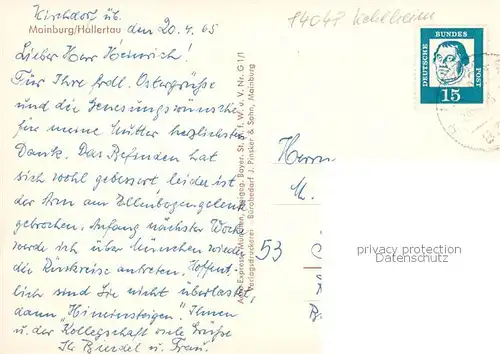 Kirchdorf üb.
Mainburg/Hallertau den 20.4.65
Lieber Herr Heinrich!
Für Ihre frdl. Ostergrüße
und die Genesungswünsche
für meine Mutter herzlichsten
Dank. Das Befinden hat
sich wohl gebessert leider ist
der Arm am Ellenbogengelenk
gebrochen. Anfang nächster Woche
werde ich über München wieder
die Rückreise antreten. Hoffent-
lich sind Sie nicht überlastet,
dann "Hineinsteigen". Ihnen
u. der Kollegschaft viele Grüße
Ihr u. Frau.
Aero Expreß München, freigeg. Bayer. St. M. f. W. u. V. Nr. G 1/1
Verlagsdruckerei - Bürobedarf J. Pinsker & Sohn, Mainburg
84048
DEUTSCHE BUNDES POST
15
Herrn
M.
53
privacy protection
Datenschutz